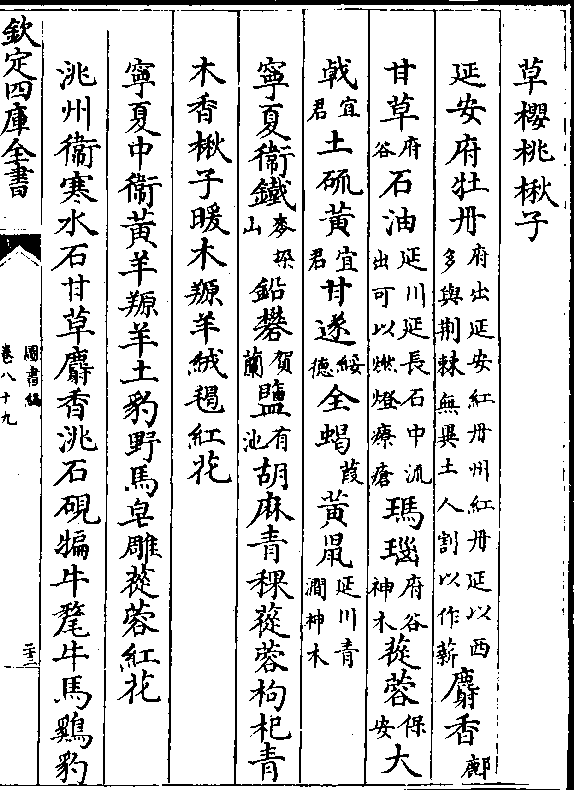 草櫻桃楸子
延安府牡丹府出延安紅丹州紅丹延以西多與荆棘無異土人割以作薪麝香鄜
甘草府谷石油延川延長石中流出可以燃燈療瘡瑪瑙府谷神木蓯蓉保安大
戟宜君土硫黃宜君甘遂綏德全蝎葭黃鼠延川青澗神木
寧夏衛鐵麥垜山鉛礬賀蘭鹽有池胡麻青稞蓯蓉枸杞青
木香楸子暖木羱羊絨毼紅花
寧夏中衛黃羊羱羊土豹野馬皂雕蓯蓉紅花
洮州衛寒水石甘草麝香洮石硯犏牛氂牛馬鷄豹
欽定四庫全書
圖書編
卷八十九